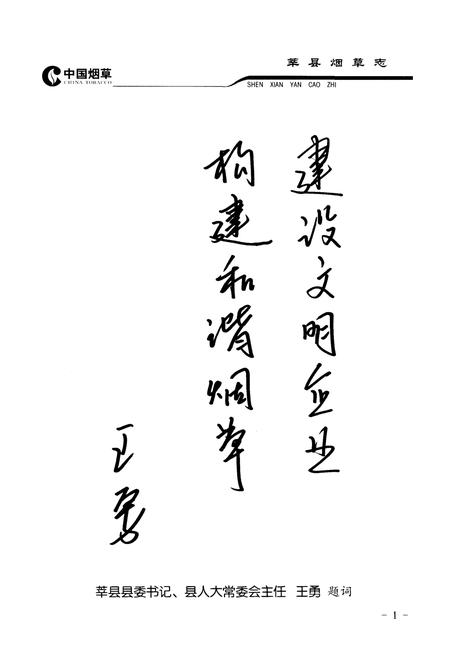 中国烟草
CHINA TOBACCO
莘县烟草志
SHEN XIAN YAN CAO ZHI
建设文明企业
构建和谐烟草
王勇
莘县县委书记、县人大常委会主任 王勇 题词
- 1 -